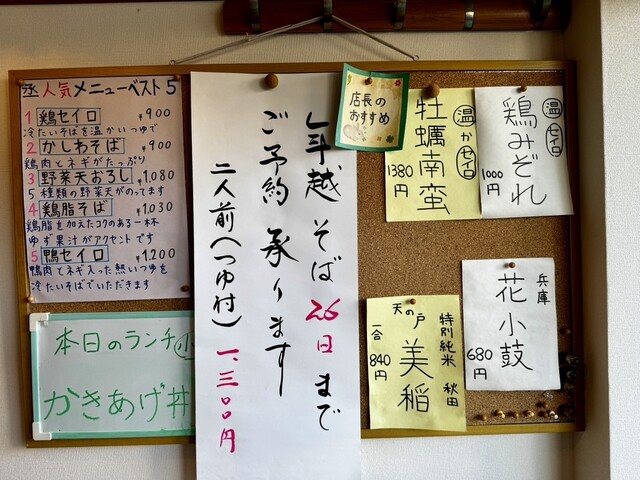 丞 人気メニューベスト5
1 鶏セイロ ¥900
冷たいそばを温かいつゆで
2 かしわそば ¥900
鶏肉とネギがたっぷり
3 野菜天おろし ¥1,080
5種類の野菜天がのってます
4 鶏脂そば ¥1,030
鶏脂を加えたコクのある一杯
ゆず果汁がアクセントです
5 鴨セイロ ¥1,200
鴨肉とネギ入った熱いつゆを
冷たいそばでいただきます
本日のランチ 小
かきあげ丼
年越そば26日まで
ご予約承ります
二人前(つゆ付) 一、三〇〇円
店長の
おすすめ
温かセイロ
牡蠣南蛮
1380円
温セイロ
鶏みぞれ
1000円
特別純米 秋田
天の戸 美稲
一合 840円
兵庫
花小鼓
680円